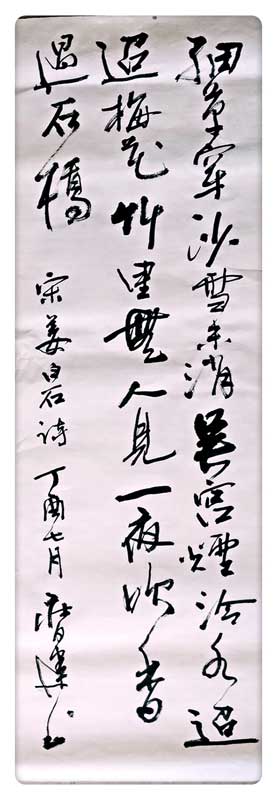 細草穿沙雪未消吳宮煙冷水迢
迢梅花竹里無人見一夜吹香
過石橋 宋姜白石詩 丁酉七月 書